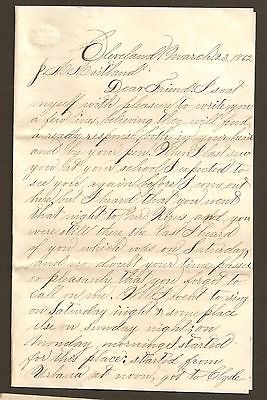 Cleveland March 23, 1862
J. M. Martland
Dear Friend, I seat
myself with pleasure to write you
a few lines, believing they will find
a ready response, both in your heart
and by your pen. When I last saw
you at your school, I expected to
see you again before I come out
here, but I heard that you went
that night to and you
were still there the last I heard
of you which was on Saturday,
and no doubt your time passes
so pleasantly that you forgot to
call on me. Well I went to sing
on Saturday night & some place
else on Sunday night; on
Monday morning started
for this place; started from
Urbana at noon, got to Clyde